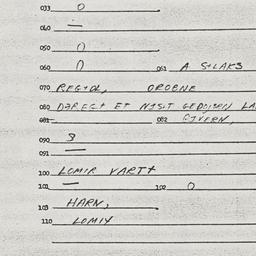 033 0
040 —
050 0
060 0 061 A SILAKS
070 REGIOL, OROENE
080 DARECT ET NISIT GEDOISEN LA
081 082 GIVERN,
090 3
091 —
100 LOMIR VARTX
101 — 102 0
103 HARN,
110 LOMIX